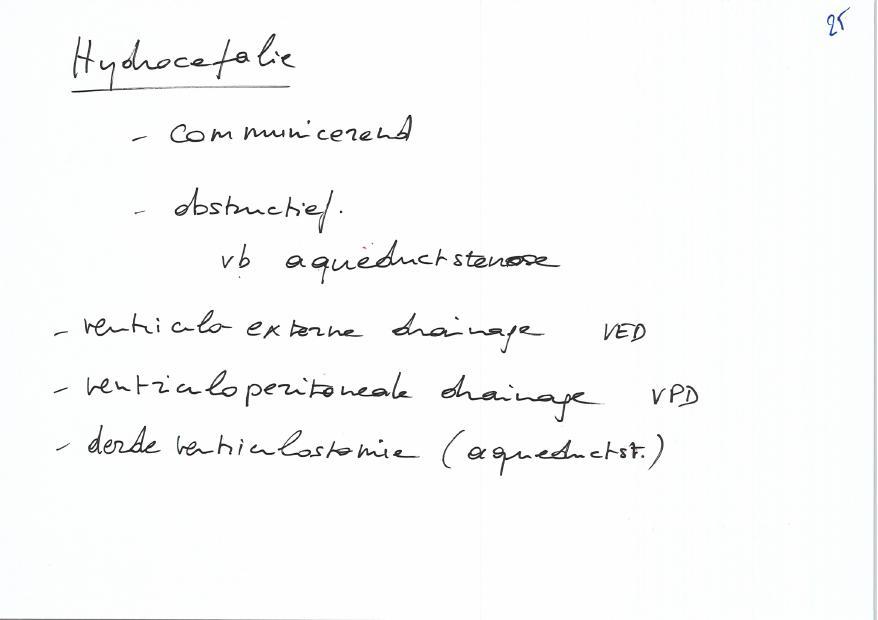 25
Hydrocefalie
- communicerend
- obstructief.
vb aqueductstenose
- ventriculo externe drainage VED
- ventriculoperitoneale drainage VPD
- derde ventriculostomie (aqueductst.)